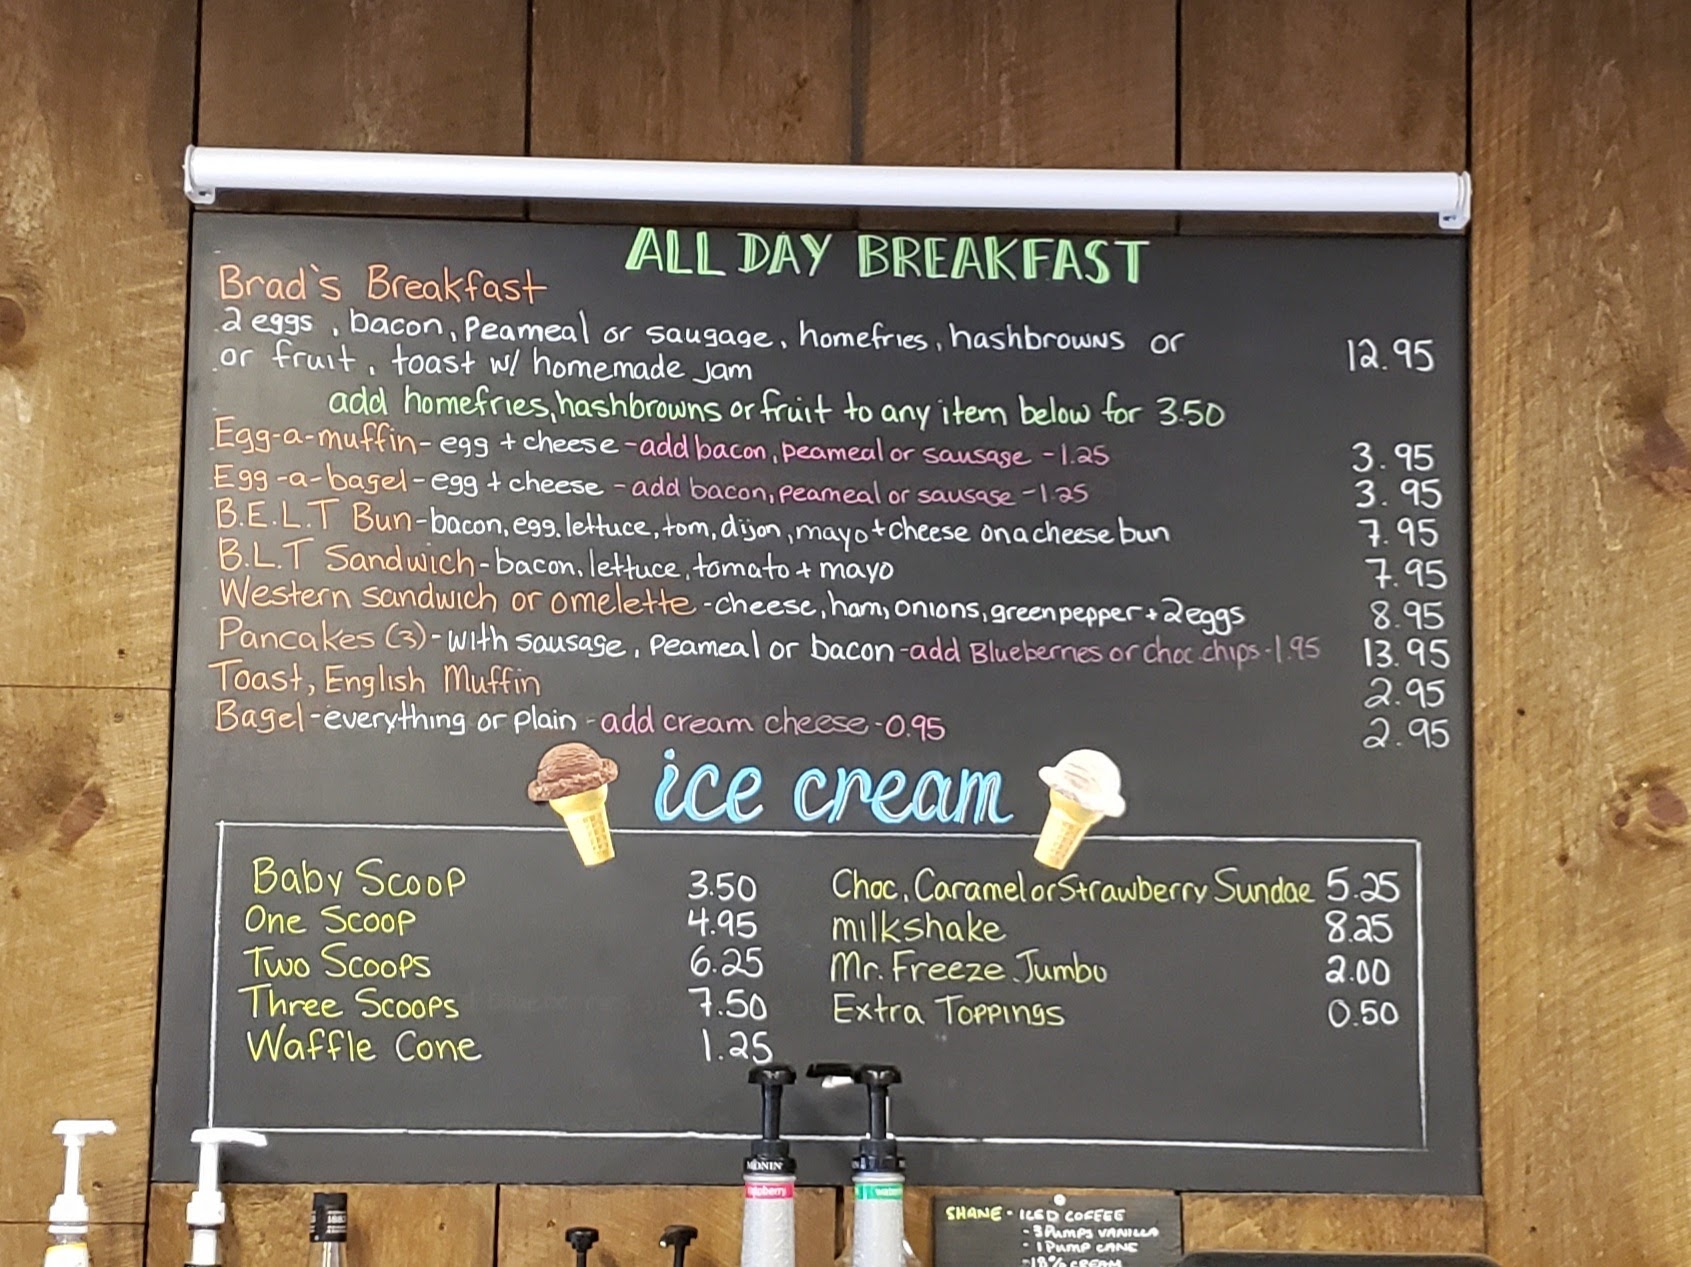 ALL DAY BREAKFAST
Brad's Breakfast
2 eggs, bacon, peameal or saugage, homefries, hashbrowns or 12.95
or fruit, toast w/ homemade jam
add homefries, hashbrowns or fruit to any item below for 3.50
Egg-a-muffin- egg + cheese -add bacon, peameal or sausage -1.25 3.95
Egg-a-bagel- egg + cheese - add bacon, peameal or sausage -1.25 3.95
B.E.L.T Bun-bacon, egg, lettuce, tom, dijon, mayo + cheese on a cheese bun 7.95
B.L.T Sandwich-bacon, lettuce, tomato + mayo 7.95
Western sandwich or omelette -cheese, ham, onions, green pepper + 2 eggs 8.95
Pancakes (3)- with sausage, peameal or bacon -add Blueberries or choc.chips -1.95 13.95
Toast, English Muffin 2.95
Bagel -everything or plain -add cream cheese -0.95 2.95
ice cream
Baby Scoop 3.50
One Scoop 4.95
Two Scoops 6.25
Three Scoops 7.50
Waffle Cone 1.25
Choc, Caramel or Strawberry Sundae 5.25
milkshake 8.25
Mr. Freeze Jumbo 2.00
Extra Toppings 0.50
MONIN
1883
SHANE - ICED COFFEE
- 3 PUMPS VANILLA
- 1 PUMP CANE
- 18% CREAM